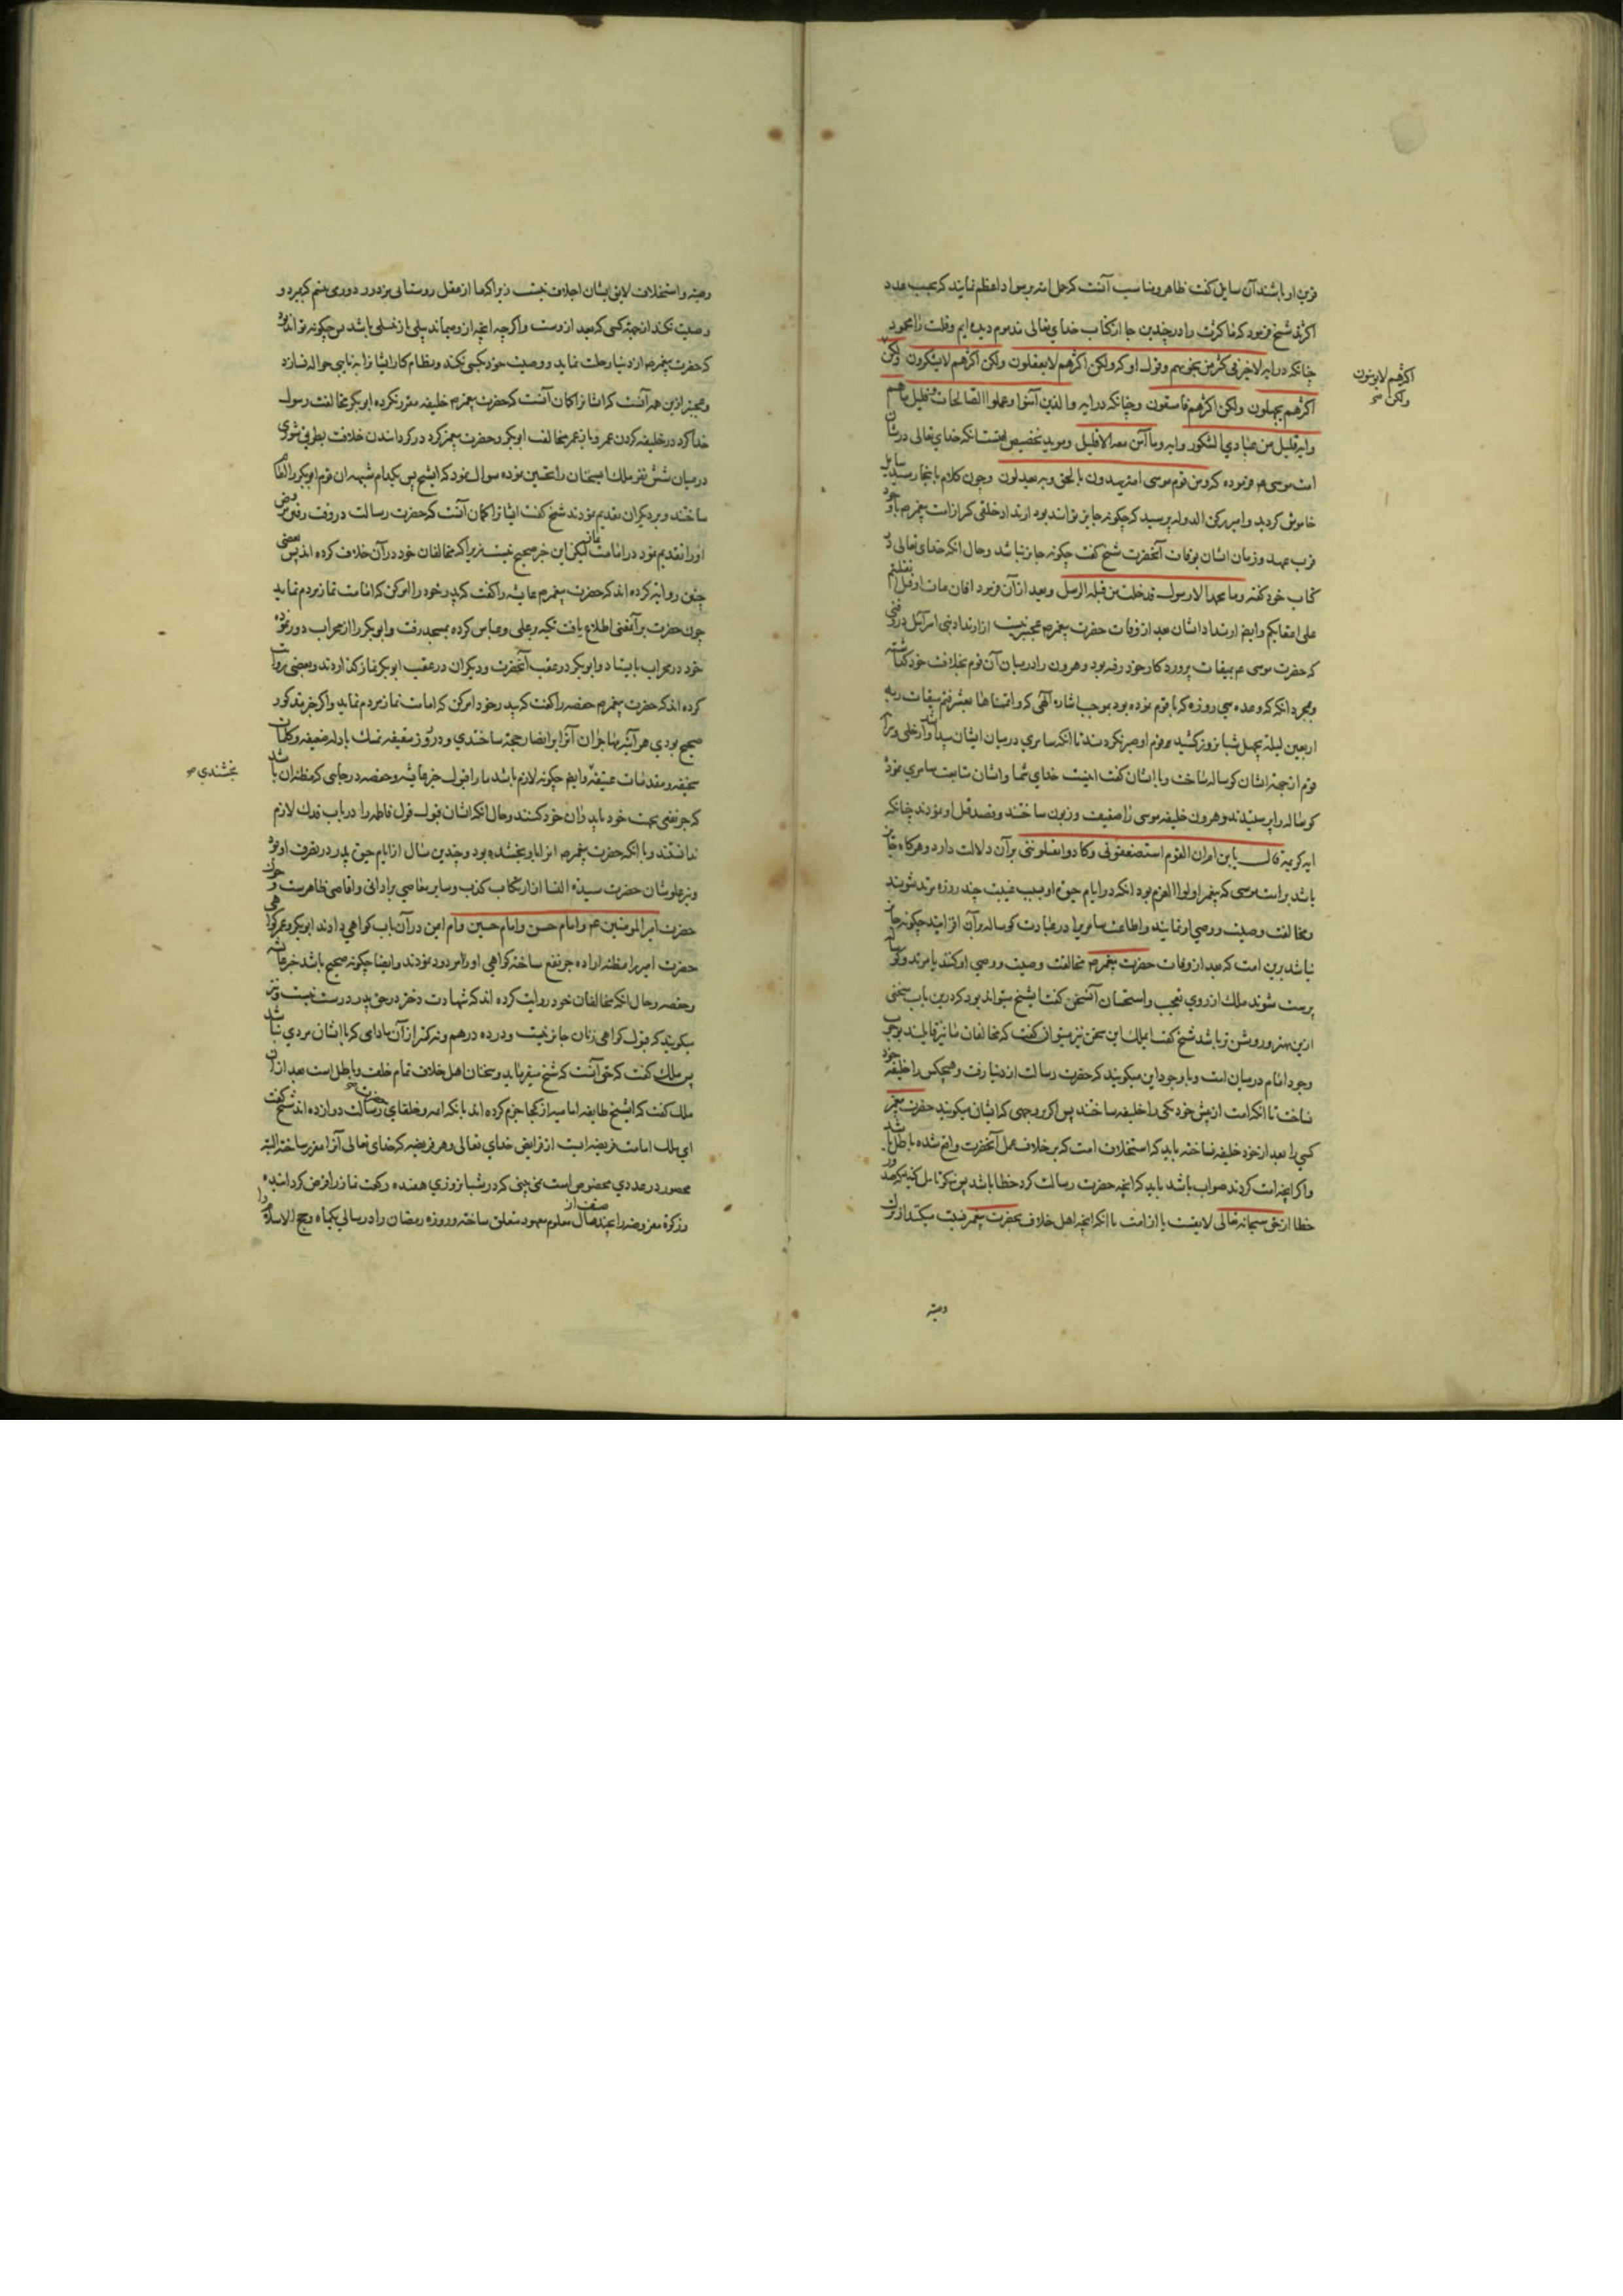 قرین او باشند آن سایل گفت ظاهر و مناسب آنست که حل امت بر سواد اعظم نمایند که بحسب عدد
اکثرند شیخ فرمود که ما کثرت را در چندین جا از کتاب خدای تعالی مذموم دیده ایم و قلت را محمود
چنانکه در آیه لا خیر فی کثیر من نجویهم و قول او که ولکن اکثرهم لا یعقلون ولکن اکثرهم لا یشکرون ولکن
اکثرهم لا یؤمنون ولکن
اکثرهم یجهلون ولکن اکثرهم فاسقون و چنانکه در آیه والذین آمنوا وعملوا الصالحات وقلیل ما هم
وآیه قلیل من عبادی الشکور وآیه وما آمن معه الا قلیل و مؤید تخصیص اینست که خدای تعالی در شان
امت موسی ع فرموده که ومن قوم موسی امة یهدون بالحق وبه یعدلون و چون کلام باینجا رسید سایل
خاموش گردید و امیر رکن الدوله پرسید که چگونه جایز تواند بود ارتداد خلقی که از امت پیغمبرص با وجود
قرب عهد و زمان ایشان بوفات آنحضرت شیخ گفت چگونه جایز نباشد و حال آنکه خدای تعالی در
کتاب خود گفته وما محمد الا رسول قد خلت من قبله الرسل و بعد از آن فرمود افان مات او قتل انقلبتم
علی اعقابکم و ایضا ارتداد ایشان بعد از وفات حضرت پیغمبرص عجبتر نیست از ارتداد بنی اسرائیل در وقتی
که حضرت موسی ع بمیقات پروردگار خود رفته بود و هرون را در میان آن قوم بخلافت خود گذاشته
و بمجرد آنکه وعده سی روزه که با قوم نموده بود بموجب اشاره الهی که واتممناها بعشر فتم میقات ربه
اربعین لیلة بچهل شبانروز کشید قوم او صبر نکردند تا آنکه سامری در میان ایشان پیدا شد و از حلی و زیور
قوم از جهة ایشان گوساله ساخت و با ایشان گفت اینست خدای شما و ایشان متابعت سامری نموده
گوساله را پرستیدند و هرون خلیفه موسی را ضعیف و زبون ساختند و قصد قتل او نمودند چنانکه
آیه کریمه قال یا بن ام ان القوم استضعفونی وکادوا یقتلوننی بر آن دلالت دارد و هرگاه جایز
باشد بر امت موسی که پیغمبر اولوا العزم بود آنکه در ایام حیوة او بسبب غیبت چند روزه مرتد شوند
و مخالفت وصیت و وصی او نمایند و اطاعت سامری را در عبادت گوساله بر آن افزایند چگونه جایز
نباشد برین امت که بعد از وفات حضرت پیغمبرص مخالفت وصیت و وصی او کنند یا مرتد و گوساله
پرست شوند ملک از روی تعجب و استحسان آن سخن گفت ایشیخ میتواند بود که درین باب سخنی
ازین بهتر و روشن تر باشد شیخ گفت ایملک این سخن نیز میتوان گفت که مخالفان ما نیز قایلند بوجوب
وجود امام در میان امت و با وجود این میگویند که حضرت رسالت از دنیا رفت و هیچکس را خلیفه خود
نساخت تا آنکه امت از پیش خود یکی را خلیفه ساختند پس اگر بر وجهی که ایشان میگویند حضرت پیغمبر
کسی را بعد از خود خلیفه نساخته باید که استخلاف امت که بر خلاف عمل آنحضرت واقع شده باطل باشد
و اگر آنچه امت کردند صواب باشد باید که آنچه حضرت رسالت کرد خطا باشد پس نیکو تامل کنید که صدور
خطا از نبی سبحانه تعالی لایقست یا از امت با آنکه آنچه اهل خلاف بحضرت پیغمبر نسبت میکنند از ترک
وصیة
وصیة و استخلاف لایق ایشان اجلاف نیست زیرا که ما از عقل روستائی مزدور دوری بینیم که بمیرد و
وصیت نکند از جهة کسی که بعد ازوست و اگرچه آنچه ازو میماند بیلی یا زنبیلی باشد پس چگونه تواند بود
که حضرت پیغمبرص از دنیا رحلت نماید و وصیت خود بکسی نکند و نظام کار ایشان را به نایبی حواله نسازد
و عجبتر ازین همه آنست که ایشان را گمان آنست که حضرت پیغمبرص خلیفه مقرر نکرده ابوبکر مخالفت رسول
خدا کرد در خلیفه کردن عمر و باز عمر مخالفت ابوبکر و حضرت پیغمبر کرد در گرداندن خلافت بطریق شوری
در میان شش نفر ملک این سخنان را تحسین نموده سوال نمود که ایشیخ پس بکدام شبهه آن قوم ابوبکر را امام
ساختند و بر دیگران تقدیم نمودند شیخ گفت ایشان را گمان آنست که حضرت رسالت در وقت رفتن مرض
او را تقدیم نمود در امامت نماز لیکن این خبر صحیح نیست زیرا که مخالفان خود در آن خلاف کرده اند پس بعضی
چنین روایة کرده اند که حضرت پیغمبرص عایشه را گفت که پدر خود را امر کن که امامت نماز مردم نماید
چون حضرت بر آنمعنی اطلاع یافت تکیه بر علی و عباس کرده بمسجد رفت و ابوبکر را از محراب دور نموده
خود در محراب بایستاد و ابوبکر در عقب آنحضرت و دیگران در عقب ابوبکر نماز گذاردند و بعضی روایت
کرده اند که حضرت پیغمبرص حفصه را گفت که پدر خود را امر کن که امامت نماز مردم نماید و اگر خبر مذکور
صحیح بودی هر آینه مهاجران آنرا بر انصار حجة ساختندی و در روز سقیفه تمسک بادله ضعیفه و کلمات
سخیفه و مقدمات عتیقه و ایضا چگونه لازم باشد ما را قبول خبر عایشه و حفصه در جایی که مظنه آن باشد
بخشندی ص
که جر نفعی بجهت خود یا پدران خود کنند و حال آنکه ایشان قبول قول فاطمه را در باب فدک لازم
ندانستند با آنکه حضرت پیغمبرص آنرا باو بخشیده بود و چندین سال از ایام حیوة پدر در تصرف او بود
و نیز علو شان حضرت سیدة النسا از ارتکاب کذب و سایر معاصی بر ادانی و اقاصی ظاهرست و چون
حضرت امیر المومنین ع و امام حسن و امام حسین و ام ایمن در آن باب گواهی دادند ابوبکر و عمر گواهی
حضرت امیر را مظنه اراده جر نفع ساخته گواهی او را مردود نمودند و ایضا چگونه صحیح باشد خبر عایشه
و حفصه و حال آنکه مخالفان خود روایت کرده اند که شهادت دختر در حق پدر درست نیست و نیز
میگویند که قبول گواهی زنان جایز نیست و در ده درهم و نه کمتر از آن مادامی که با ایشان مردی نباشد
پس ملک گفت که حق آنست که شیخ میفرماید و سخنان اهل خلاف تمام خلف و باطل است بعد از آن
ملک گفت که ایشیخ طایفه امامیه از کجا جزم کرده اند بآنکه ائمه و خلفای حضرت رسالت دوازده اند شیخ گفت
ای ملک امامت فریضه ایست از فرایض خدای تعالی و هر فریضه که خدای تعالی آنرا مقرر ساخته البته
محصور در عددی مخصوص است نمی بینی که در شبانروزی هفده رکعت نماز را فرض گردانیده
و زکوة مفروضه را بچند صنف از مال معلوم معهود متعلق ساخته و روزه رمضان را در سالی یکماه و حج الاسلام را